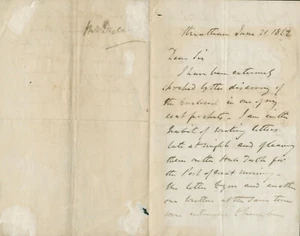 June 21, 1862
Dear Sir
I have been extremely
shocked by the discovery of
the enclosed in one of my
coat pockets. I am in the
habit of writing letters
late at night and placing
them on the Hall Table for
the Post of next morning –
the letter to you and another
one written at the same time
were